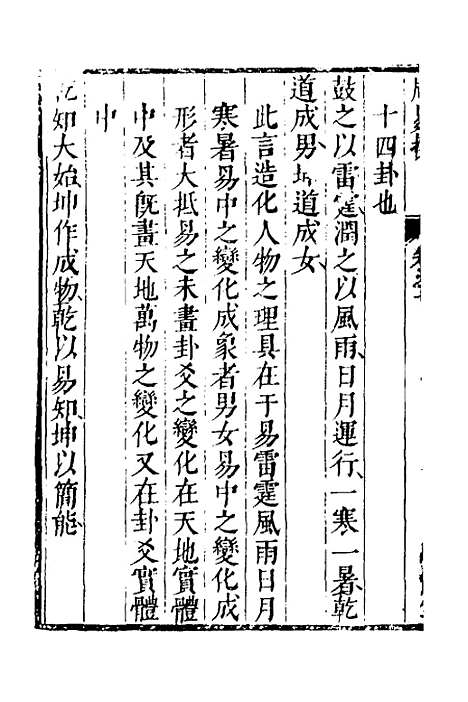 十四卦也
鼓之以雷霆潤之以風雨日月運行一寒一暑乾
道成男坤道成女
此言造化人物之理具在于易雷霆風雨日月
寒暑易中之變化成象者男女易中之變化成
形者大抵易之未畫卦爻之變化在天地實體
中及其旣畫天地萬物之變化又在卦爻實體
中
乾知大始坤作成物乾以易知坤以簡能